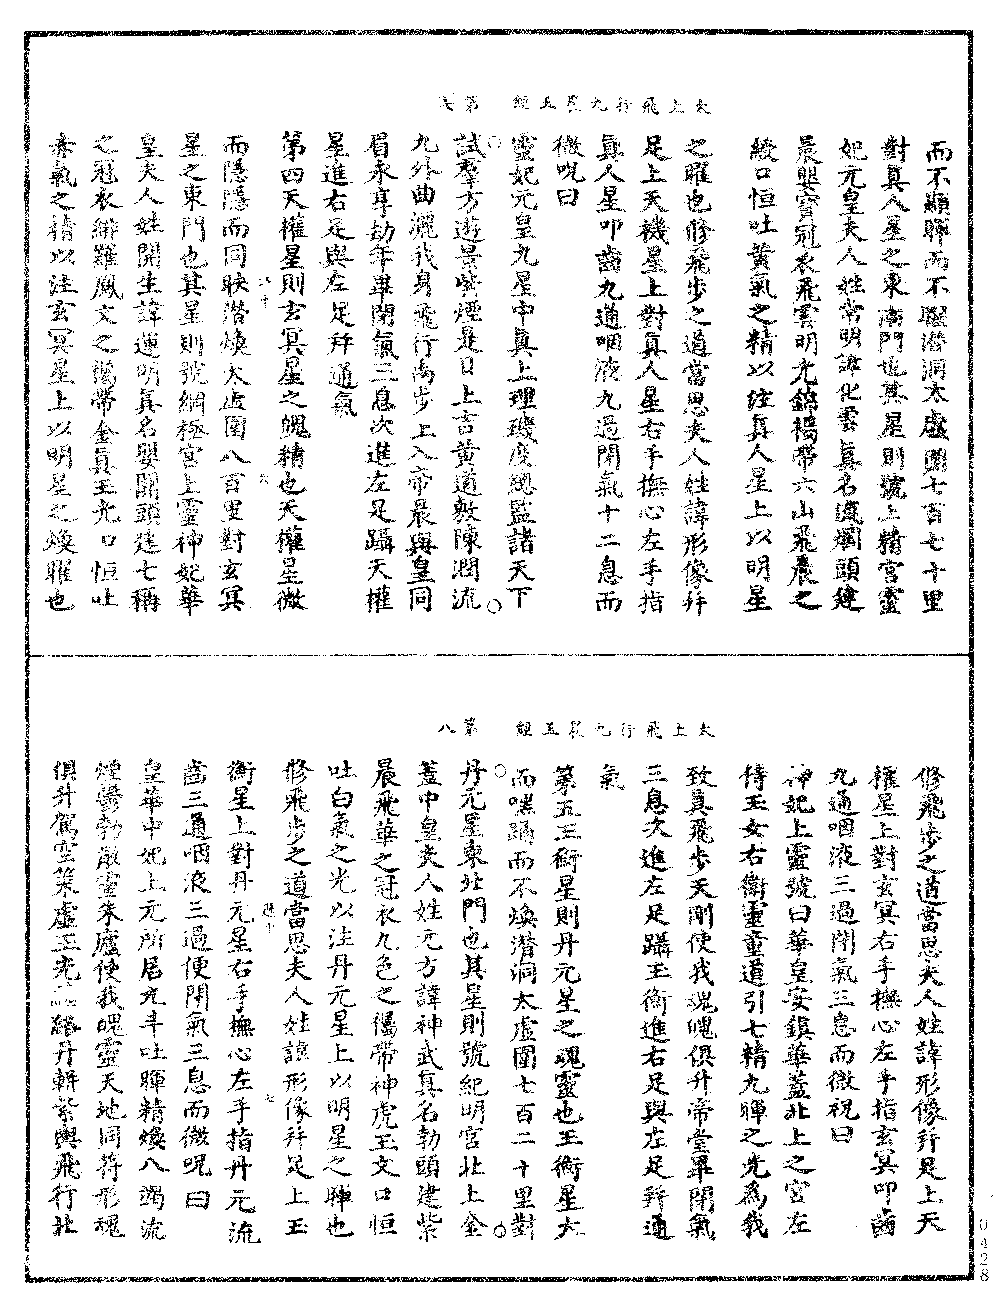 太上飛行九晨玉經　第六
而不顯聯而不聯潛洞太虛圍七百七十里
對真人星之東南門也其星則號上精宮靈
妃元皇夫人姓常明諱化雲真名頭建
晨嬰寶冠衣飛雲明光錦褐帶六山飛晨之
綬口恒吐黃氣之精以注真人星上以明星
之曜也修飛步之道當思夫人姓諱形像并
足上天機星上對真人星右手撫心左手指
真人星叩齒九通咽液九過閉氣十二息而
微呪曰
靈妃元皇九星中真上理璣度總監諸天下
試羣方遊景紫煙是日上吉黃道敷陳潤流
九外曲灑我身飛行禹步上入帝晨與皇同
眉永享劫年畢閉氣三息次進左足躡天權
星進右足與左足并通氣
第四天權星則玄冥星之魄精也天權星微
而隱隱而同映潛煥太虛圍八百里對玄冥
星之東門也其星則號綱極宮上靈神妃華
皇夫人姓開生諱運明真名嬰關頭建七稱
之冠衣緋羅鳳文之褐帶金真玉光口恒吐
赤氣之精以注玄冥星上以明星之煥曜也
太上飛行九晨玉經　第八
修飛步之道當思夫人姓諱形像并足上天
權星上對玄冥右手撫心左手指玄冥叩齒
九通咽液三過閉氣三息而微祝曰
神妃上靈號曰華皇安鎮華蓋北上之宮左
侍玉女右衛靈童道引七精九暉之光為我
致真飛步天剛使我魂魄俱升帝堂畢閉氣
三息次進左足躡玉衡進右足與左足并通
氣
第五玉衡星則丹元星之魂靈也玉衡星大
而喘躡而不煥潛洞太虛圍七百二十里對
丹元星東北門也其星則號紀明宮北上金
蓋中皇夫人姓元方諱神武真名勃頭建紫
晨飛華之冠衣九色之褐帶神虎玉文口恒
吐白氣之光以注丹元星上以明星之暉也
修飛步之道當思夫人姓諱形像并足上玉
衡星上對丹元星右手撫心左手指丹元流
齒三通咽液三過便閉氣三息而微呪曰
皇華中妃上元所居九斗吐暉精煥八嵎流
煙鬱勃散靈朱廬使我魄靈天地同符形魂
俱升駕空策虛玉光踏丹輧紫輿飛行北
0428